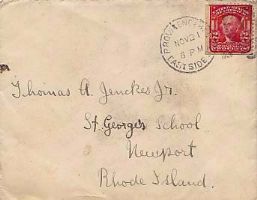 PROVIDENCE R.I.
NOV 21
8 P M
EAST SIDE
Thomas A. Jenckes Jr.
St. George's School
Newport
Rhode Island.